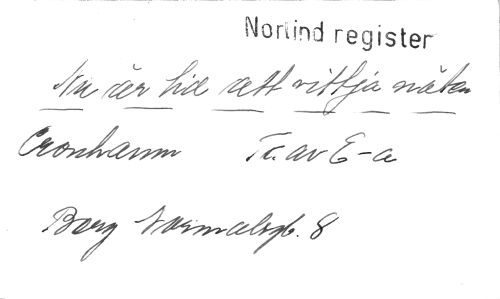 Norlind register
Nu är tid att vittja näten
Cronhamn Tr. av E-a
Berg Normalsgb. 8